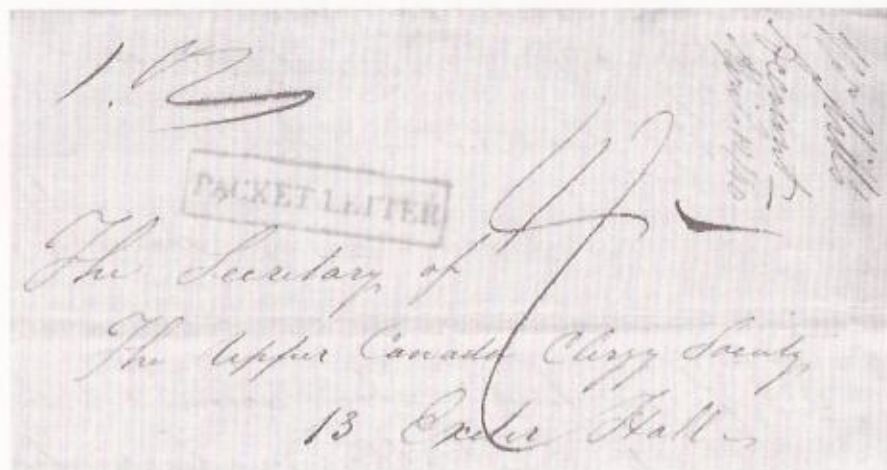 PACKET LETTER
4
The Secretary of
The Upper Canada Clergy Society
13 Exeter Hall